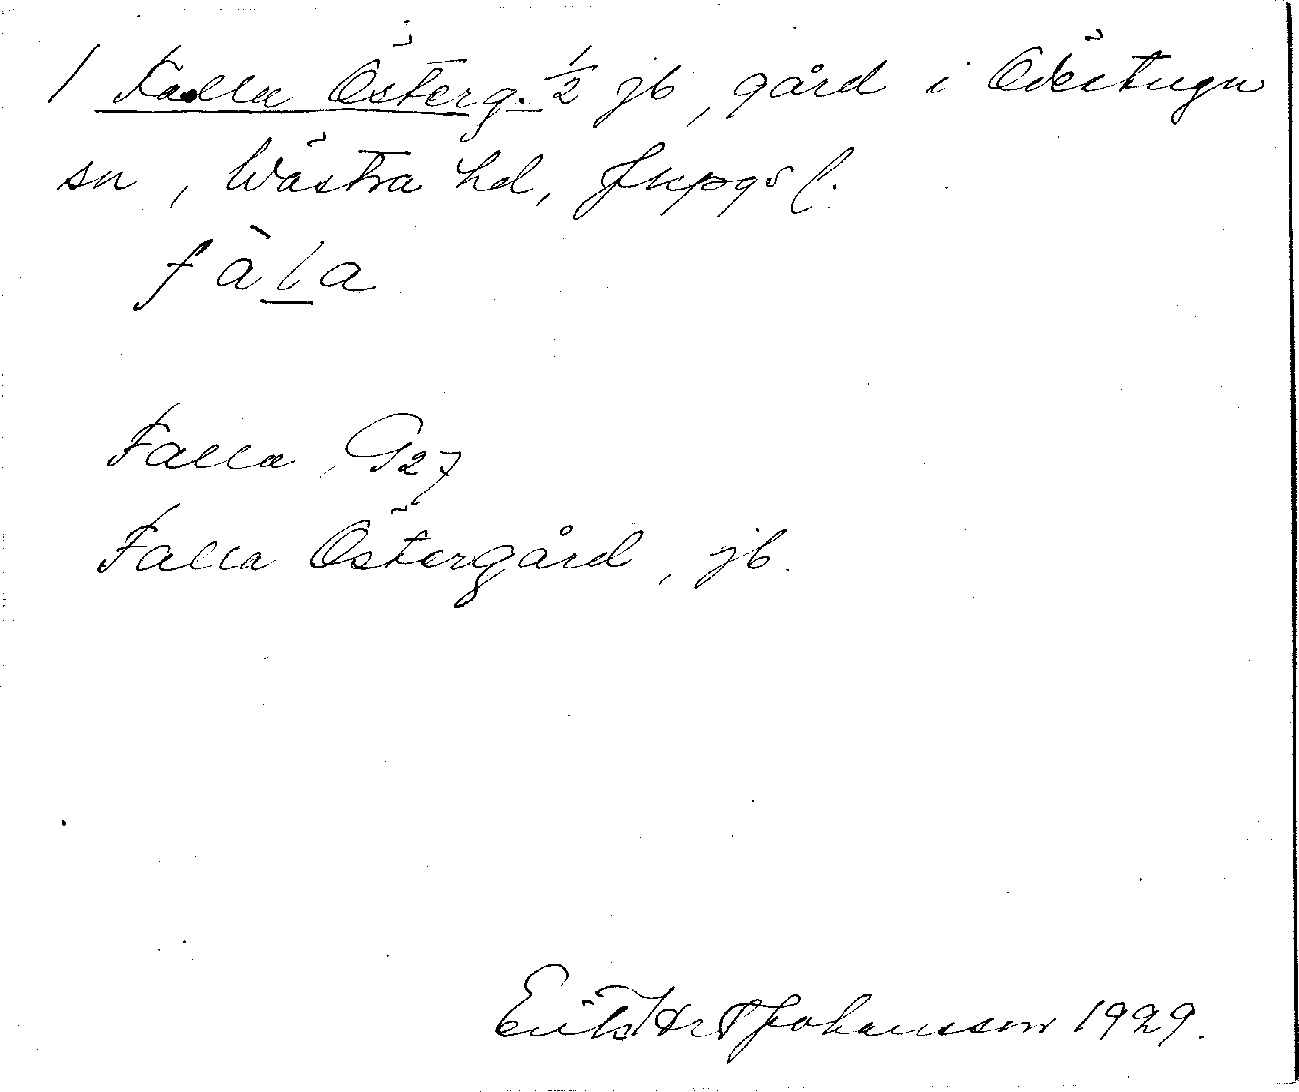 1 Falla Österg. 1/2 jb, gård i Ödestugu
sn, Västra hd, Jnkpgs l.
fàla
Falla, G27
Falla Östergård, jb.
Johansson 1929.